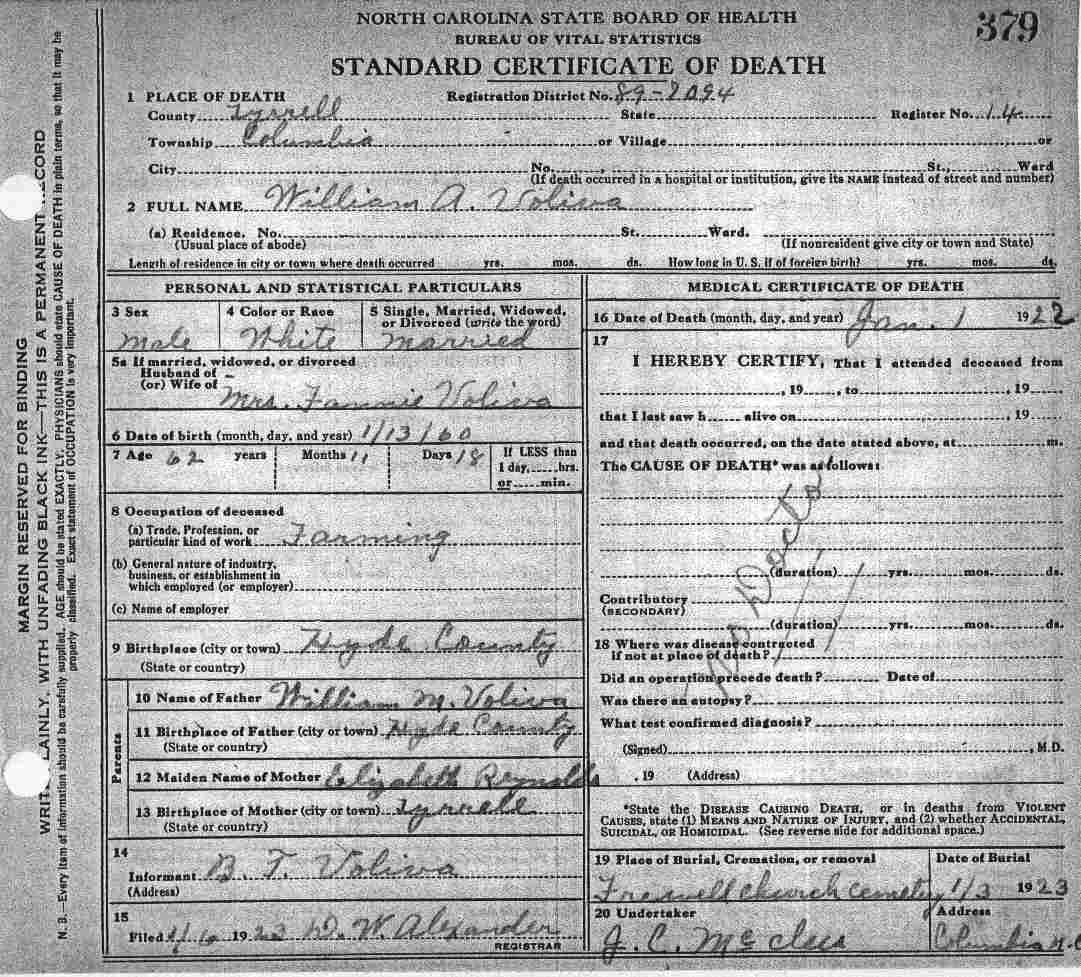 NORTH CAROLINA STATE BOARD OF HEALTH
379
BUREAU OF VITAL STATISTICS
STANDARD CERTIFICATE OF DEATH
1 PLACE OF DEATH Registration District No. 89-2094
County Tyrrell State Register No. 14
Township Columbia or Village or
City No. , St., Ward
(If death occurred in a hospital or institution, give its NAME instead of street and number)
2 FULL NAME William A. Voliva
(a) Residence. No. St. Ward.
(Usual place of abode) (If nonresident give city or town and State)
Length of residence in city or town where death occurred yrs. mos. ds. How long in U. S. if of foreign birth? yrs. mos. ds.
PERSONAL AND STATISTICAL PARTICULARS
3 Sex 4 Color or Race 5 Single, Married, Widowed, or Divorced (write the word)
Male White Married
5a If married, widowed, or divorced
Husband of
(or) Wife of Mrs. Fannie Voliva
6 Date of birth (month, day, and year) 1/13/60
7 Age 62 years Months 11 Days 18 If LESS than
1 day, hrs.
or min.
8 Occupation of deceased
(a) Trade, Profession, or
particular kind of work Farming
(b) General nature of industry,
business, or establishment in
which employed (or employer)
(c) Name of employer
9 Birthplace (city or town) Hyde County
(State or country)
Parents
10 Name of Father William M. Voliva
11 Birthplace of Father (city or town) Hyde County
(State or country)
12 Maiden Name of Mother Elizabeth Reynolds
13 Birthplace of Mother (city or town) Tyrrell
(State or country)
14
Informant B. T. Voliva
(Address)
15
Filed 1923 W. Alexander
REGISTRAR
MEDICAL CERTIFICATE OF DEATH
16 Date of Death (month, day, and year) Jan. 1 1922
17
I HEREBY CERTIFY, That I attended deceased from
, 19 , to , 19
that I last saw h alive on , 19
and that death occurred, on the date stated above, at m.
The CAUSE OF DEATH* was as follows:
No Doctor
(duration) yrs. mos. ds.
Contributory
(SECONDARY)
(duration) yrs. mos. ds.
18 Where was disease contracted
if not at place of death?
Did an operation precede death? Date of
Was there an autopsy?
What test confirmed diagnosis?
(Signed) , M.D.
, 19 (Address)
*State the DISEASE CAUSING DEATH, or in deaths from VIOLENT
CAUSES, state (1) MEANS AND NATURE OF INJURY, and (2) whether ACCIDENTAL,
SUICIDAL, OR HOMICIDAL. (See reverse side for additional space.)
19 Place of Burial, Cremation, or removal Date of Burial
church cemetery 1/3 1923
20 Undertaker Address
J. C. McClees Columbia N.C
MARGIN RESERVED FOR BINDING
WRITE PLAINLY, WITH UNFADING BLACK INK—THIS IS A PERMANENT RECORD
N. B.—Every item of information should be carefully supplied. AGE should be stated EXACTLY. PHYSICIANS should state CAUSE OF DEATH in plain terms, so that it may be
properly classified. Exact statement of OCCUPATION is very important.